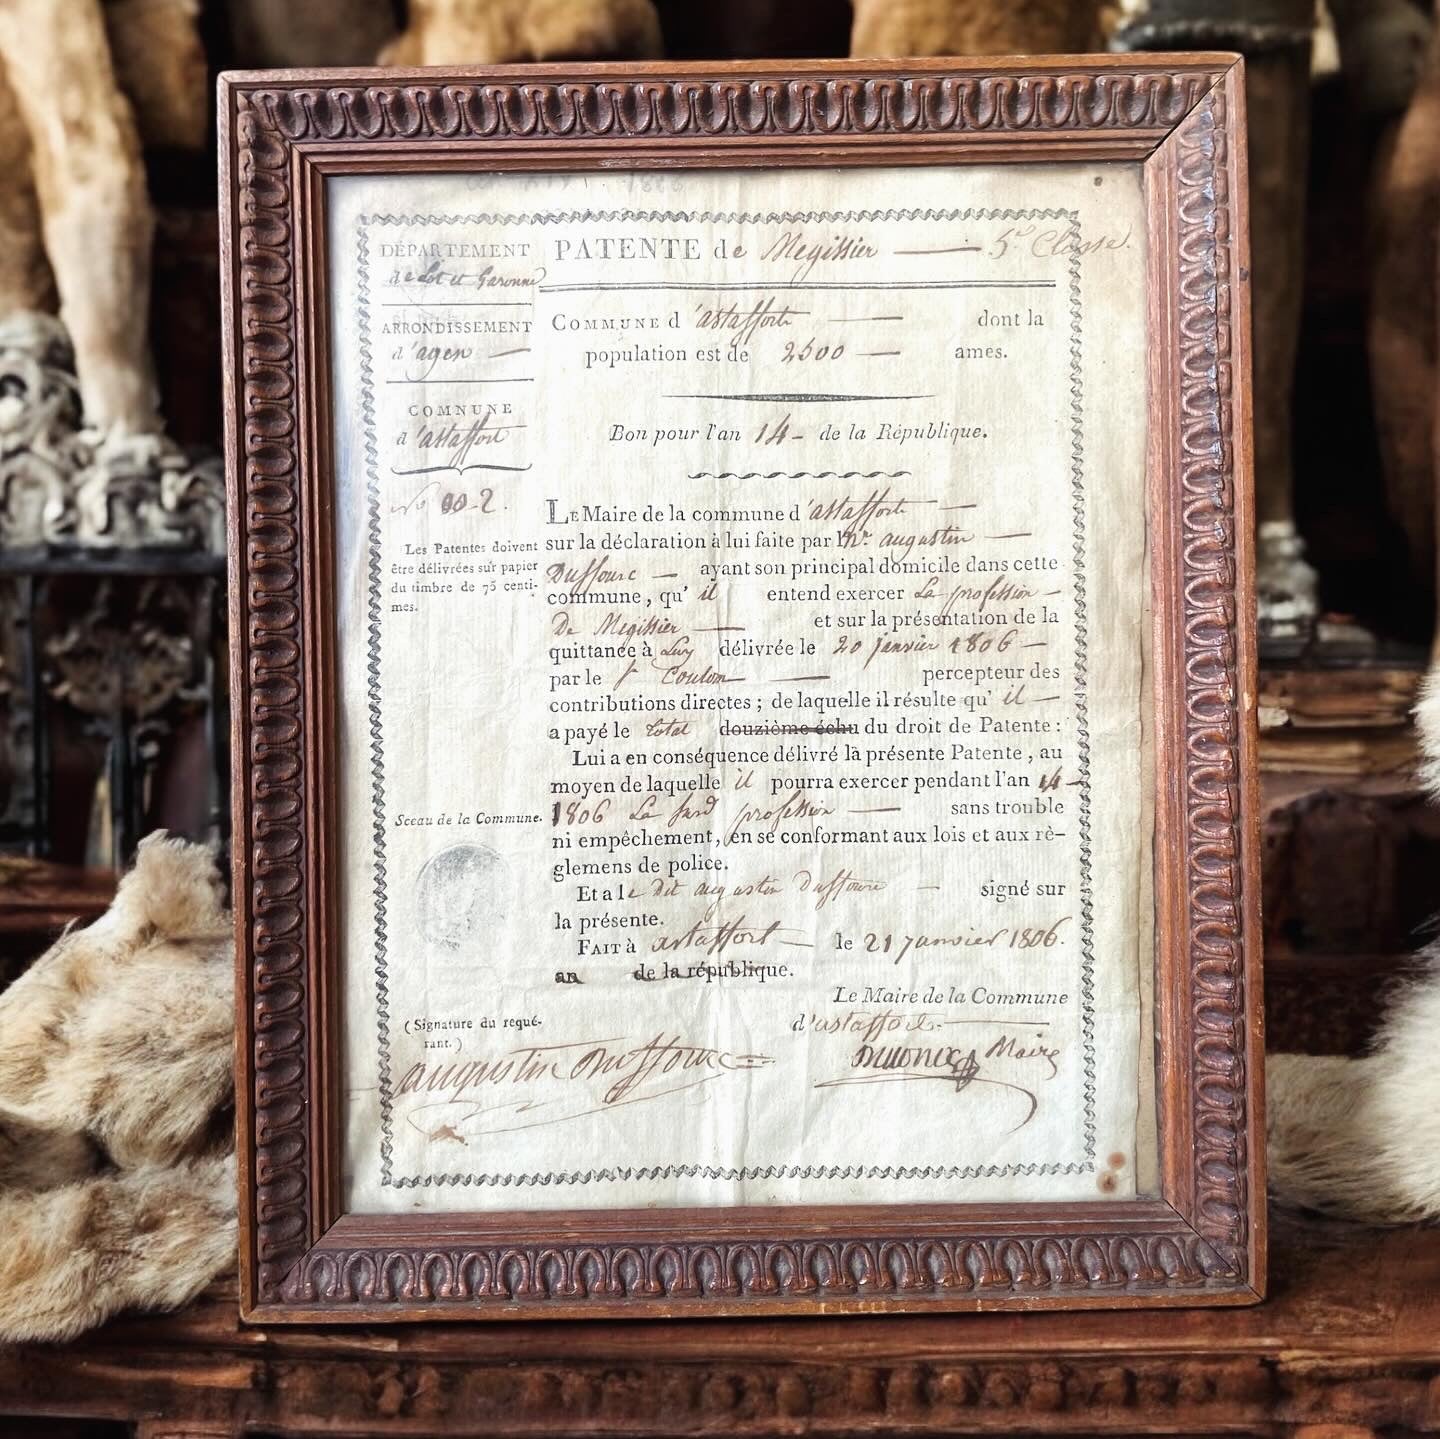 DÉPARTEMENT
de Lot et Garonne
ARRONDISSEMENT
d'agen
COMNUNE
d'astaffort
No 00-2.
Les Patentes doivent
être délivrées sur papier
du timbre de 75 centi-
mes.
Sceau de la Commune.
PATENTE de Megissier — 5e Classe.
COMMUNE d'astafforte — dont la
population est de 2500 — ames.
Bon pour l'an 14 - de la République.
LE Maire de la commune d'astafforte —
sur la déclaration à lui faite par Mr. augustin —
Duffourc — ayant son principal domicile dans cette
commune, qu' il entend exercer La profession —
De Megissier — et sur la présentation de la
quittance à Luy délivrée le 20 janvier 1806 —
par le Sr Coulom — percepteur des
contributions directes ; de laquelle il résulte qu' il —
a payé le total douzième échu du droit de Patente :
Lui a en conséquence délivré la présente Patente, au
moyen de laquelle il pourra exercer pendant l'an 14 -
1806 La profession — sans trouble
ni empêchement, en se conformant aux lois et aux rè-
glemens de police.
Et a le dit augustin Duffourc — signé sur
la présente.
FAIT à astaffort — le 21 janvier 1806.
an de la république.
Le Maire de la Commune
d'astaffort. —
Maire
(Signature du requé-
rant.)
augustin Duffourc